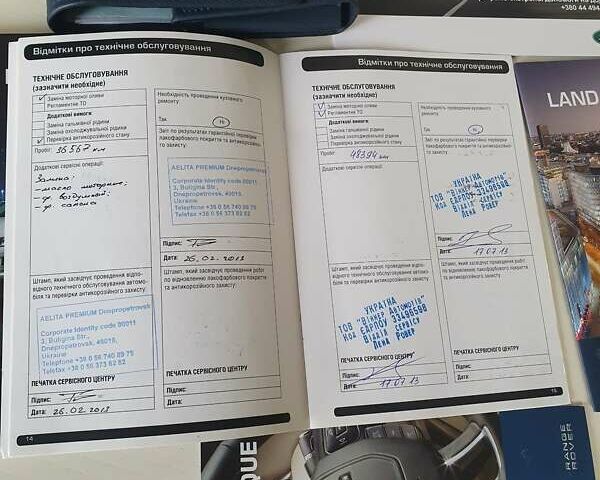 +380 44 494
Відмітки про технічне обслуговування
ТЕХНІЧНЕ ОБСЛУГОВУВАННЯ
(зазначити необхідне)
Заміна моторної оливи
Регламентне ТО
Додаткові вимоги:
Заміна гальмівної рідини
Заміна охолоджувальної рідини
Перевірка антикорозійного стану
Пробіг: 36 567 км
Додаткові сервісні операції:
Заміна:
- масло моторное;
- ф. воздушный;
- ф. салона
Штамп, який засвідчує проведення відпо-
відного технічного обслуговування автомо-
біля та перевірки антикорозійного захисту:
AELITA PREMIUM Dnepropetrovsk
Corporate Identity code 00011
3, Buligina Str.,
Dnepropetrovsk, 49015,
Ukraine
Telephone +38 0 56 740 89 75
Telefax +38 0 56 373 82 62
ПЕЧАТКА СЕРВІСНОГО ЦЕНТРУ
Підпис:
Дата: 26.02.2013
14
Необхідність проведення кузовного
ремонту
Так Ні
Звіт по результатах гарантійної перевірки
лакофарбового покриття та антикорозійного
захисту:
AELITA PREMIUM Dnepropetrovsk
Corporate Identity code 00011
3, Buligina Str.,
Dnepropetrovsk, 49015,
Ukraine
Telephone +38 0 56 740 89 75
Telefax +38 0 56 373 82 62
Підпис:
Дата: 26.02.2013
Штамп, який засвідчує проведення робіт
по відновленню лакофарбового покриття
та антикорозійного захисту:
Підпис:
Дата:
Відмітки про технічне обслуговування
ТЕХНІЧНЕ ОБСЛУГОВУВАННЯ
(зазначити необхідне)
Заміна моторної оливи
Регламентне ТО
Додаткові вимоги:
Заміна гальмівної рідини
Заміна охолоджувальної рідини
Перевірка антикорозійного стану
Пробіг: 48394 км
Додаткові сервісні операції:
Штамп, який засвідчує проведення відпо-
відного технічного обслуговування автомо-
біля та перевірки антикорозійного захисту:
УКРАЇНА
ТОВ "Віннер Автомотів"
Код ЄДРПОУ 33498568
Відділ сервісу
Ленд Ровер
ПЕЧАТКА СЕРВІСНОГО ЦЕНТРУ
Підпис:
Дата: 17.07.13
Необхідність проведення кузовного
ремонту
Так Ні
Звіт по результатах гарантійної перевірки
лакофарбового покриття та антикорозійного
захисту:
УКРАЇНА
ТОВ "Віннер Автомотів"
Код ЄДРПОУ 33498568
Відділ сервісу
Ленд Ровер
Підпис:
Дата: 17.07.13
Штамп, який засвідчує проведення робіт
по відновленню лакофарбового покриття
та антикорозійного захисту:
Підпис:
Дата:
15
LAND
QUE
RANGE
ROVER